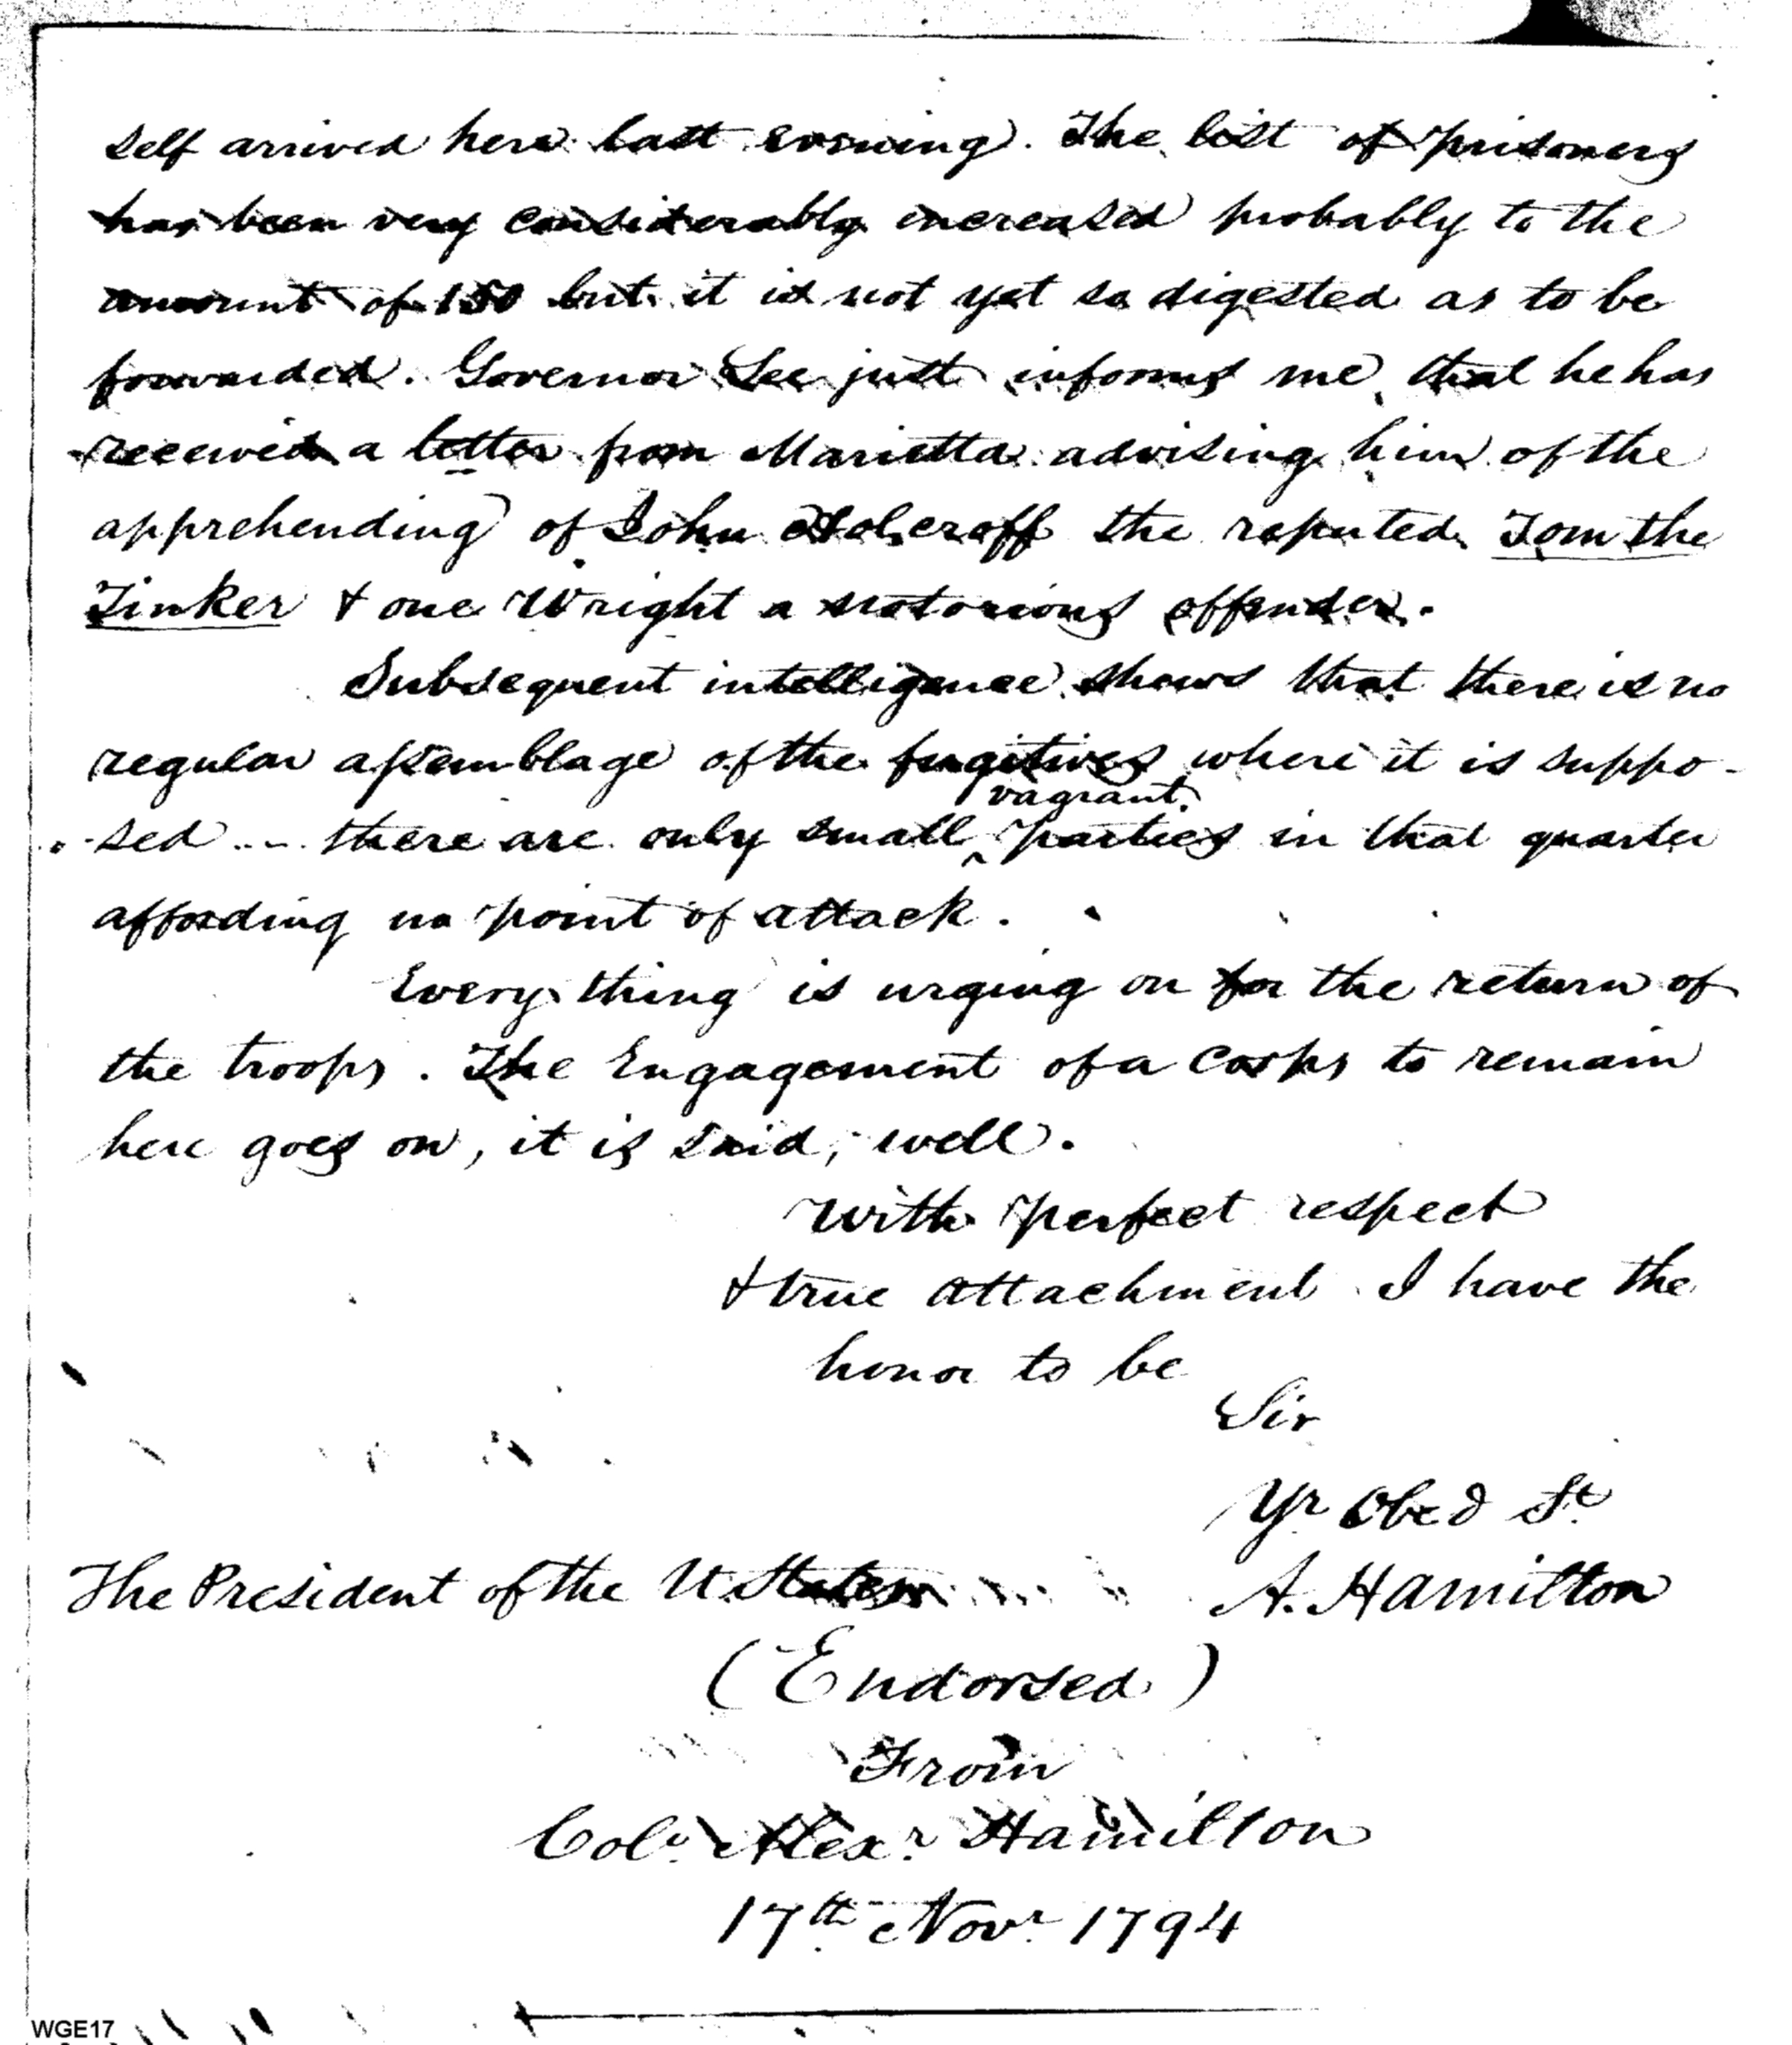 self arrived here last evening. The list of prisoners
has been very considerably increased probably to the
amount of 150 but it is not yet so digested as to be
forwarded. Governor Lee just informs me that he has
received a letter from Marietta advising him of the
apprehending of John Holcroff the reputed Tom the
Tinker & one Wright a notorious offender.
Subsequent intelligence shows that there is no
regular assemblage of the fugitives where it is suppo-
vagrant
sed -- there are only small ^ parties in that quarter
affording no point of attack.
Every thing is urging on for the return of
the troops. The Engagement of a corps to remain
here goes on, it is said, well.
With perfect respect
& true attachment I have the
honor to be
Sir
Yr Obed St
The President of the U. States A. Hamilton
(Endorsed)
From
Colo. Alexr. Hamilton
17th Novr 1794
WGE17